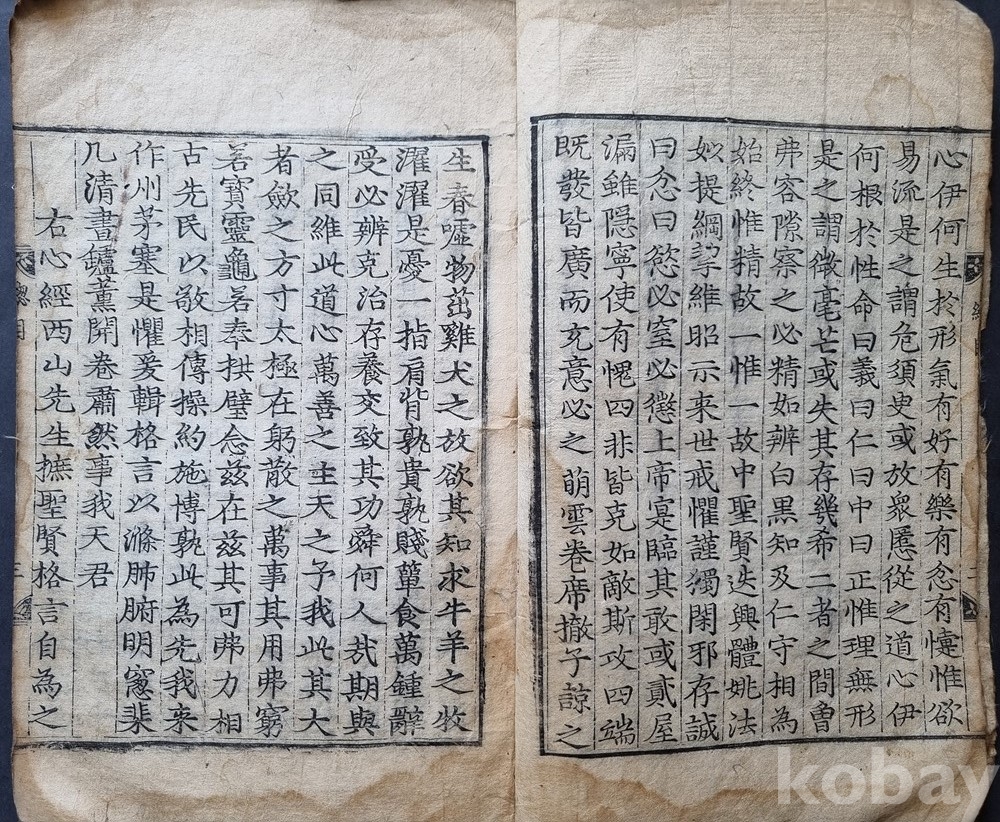 心伊何生於形氣有好有樂有忿有懥惟欲
易流是之謂危須臾或放衆慝從之道心伊
何根於性命曰義曰仁曰中曰正惟理無形
是之謂微毫芒或失其存幾希二者之間曾
弗容隙察之必精如辨白黒知及仁守相為
始終惟精故一惟一故中聖賢迭興體姚法
姒提綱挈維昭示来世戒懼謹獨閑邪存誠
曰忿曰慾必窒必懲上帝寔臨其敢或貳屋
漏雖隱寧使有愧四非皆克如敵斯攻四端
既發皆廣而充意必之萌雲卷席撤子諒之
生春噓物茁雞犬之放欲其知求牛羊之牧
濯濯是憂一指肩背孰貴孰賤簞食萬鍾辭
受必辨克治存養交致其功舜何人哉期與
之同維此道心萬善之主天之予我此其大
者斂之方寸太極在躬散之萬事其用弗窮
若寶靈龜若奉拱璧念兹在兹其可弗力相
古先民以敬相傳操約施博孰此為先我来
作州茅塞是懼爰輯格言以滌肺腑明窻棐
几清晝鑪薰開卷肅然事我天君
右心經西山先生摭聖賢格言自為之
kobay